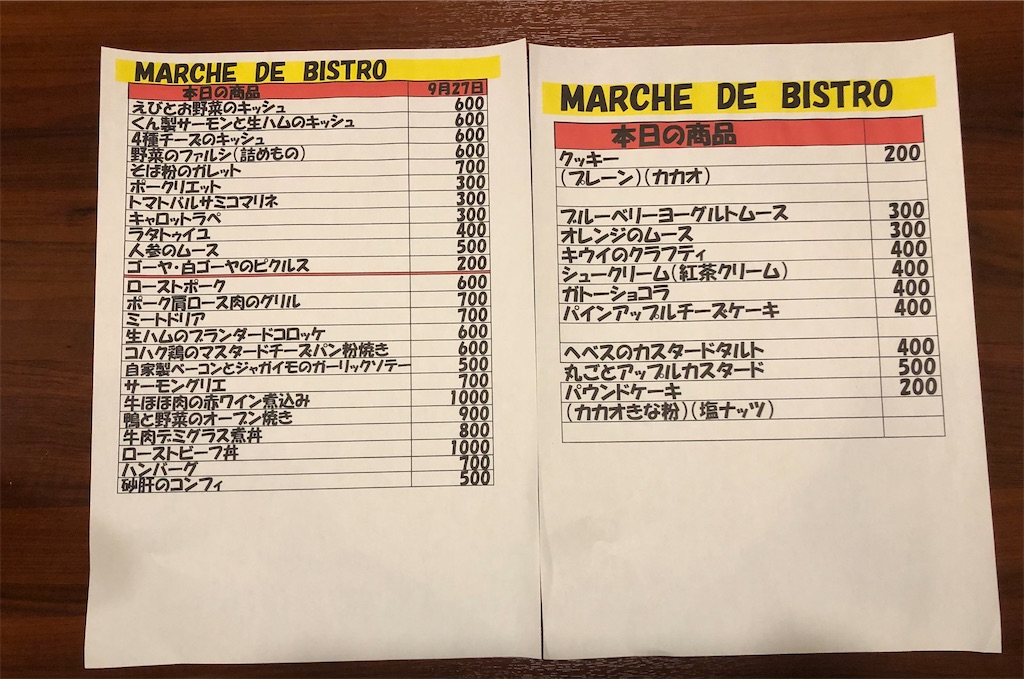 MARCHE DE BISTRO
本日の商品 9月27日
えびとお野菜のキッシュ 600
くん製サーモンと生ハムのキッシュ 600
4種チーズのキッシュ 600
野菜のファルシ(詰めもの) 600
そば粉のガレット 700
ポークリエット 300
トマトバルサミコマリネ 300
キャロットラペ 300
ラタトゥイユ 400
人参のムース 500
ゴーヤ・白ゴーヤのピクルス 200
ローストポーク 600
ポーク肩ロース肉のグリル 700
ミートドリア 700
生ハムのブランダードコロッケ 600
コハク鶏のマスタードチーズパン粉焼き 600
自家製ベーコンとジャガイモのガーリックソテー 500
サーモングリエ 700
牛ほほ肉の赤ワイン煮込み 1000
鴨と野菜のオーブン焼き 900
牛肉デミグラス煮丼 800
ローストビーフ丼 1000
ハンバーグ 700
砂肝のコンフィ 500
MARCHE DE BISTRO
本日の商品
クッキー 200
(プレーン)(カカオ)
ブルーベリーヨーグルトムース 300
オレンジのムース 300
キウイのクラフティ 400
シュークリーム(紅茶クリーム) 400
ガトーショコラ 400
パインアップルチーズケーキ 400
ヘベスのカスタードタルト 400
丸ごとアップルカスタード 500
パウンドケーキ 200
(カカオきな粉)(塩ナッツ)